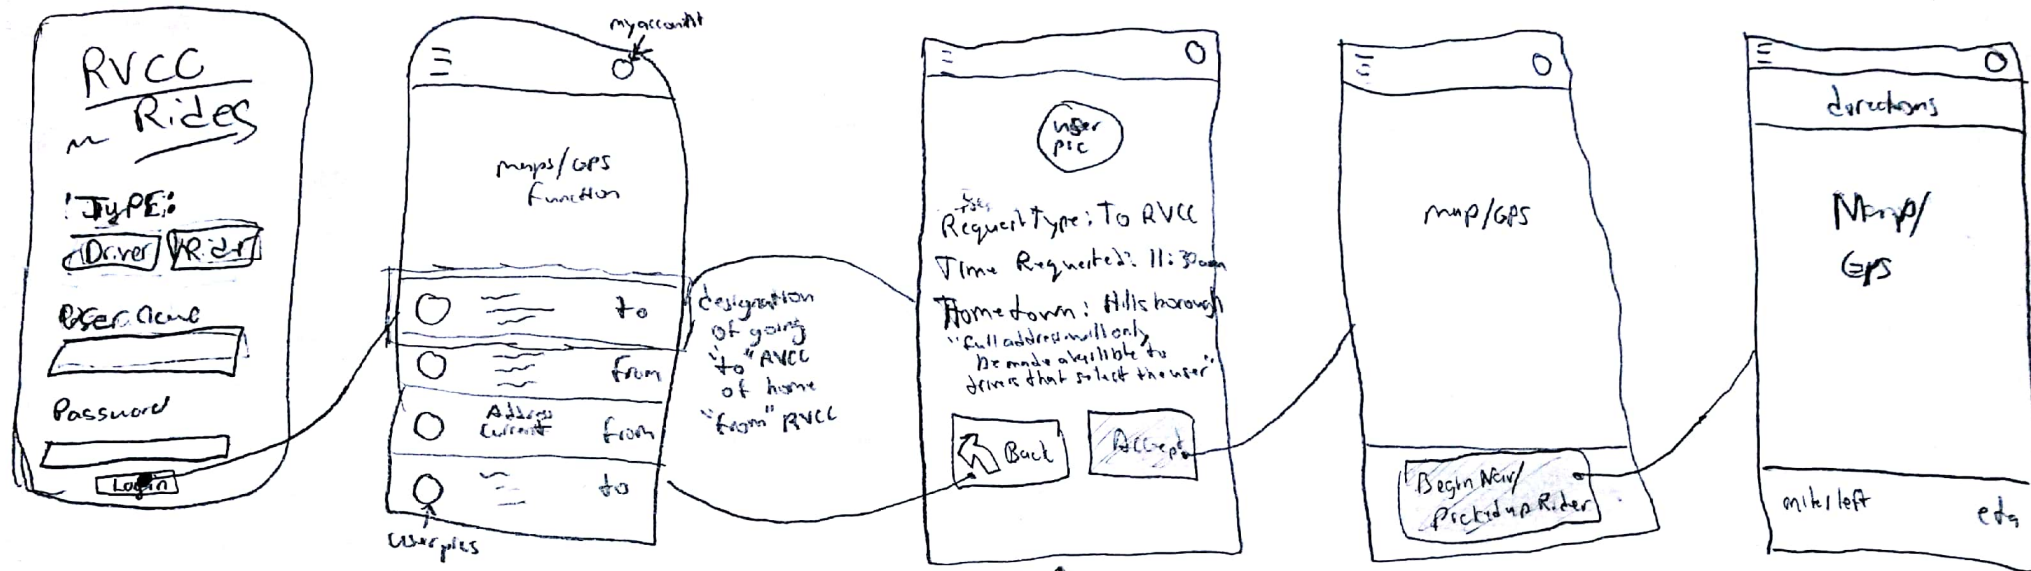 RVCC
Rides
TYPE:
Driver
Rider
Username
Password
Login
my account
maps/GPS
function
to
from
Address
Current
from
to
user pics
designation
of going
"to" RVCC
of home
"from" RVCC
user
pic
Request Type: To RVCC
Time Requested: 11:30am
Hometown: Hillsborough
"full address will only
be made availible to
drivers that select the user"
Back
Accept
map/GPS
Begin Nav/
Picked up Rider
directions
Map/
GPS
miles left
eta